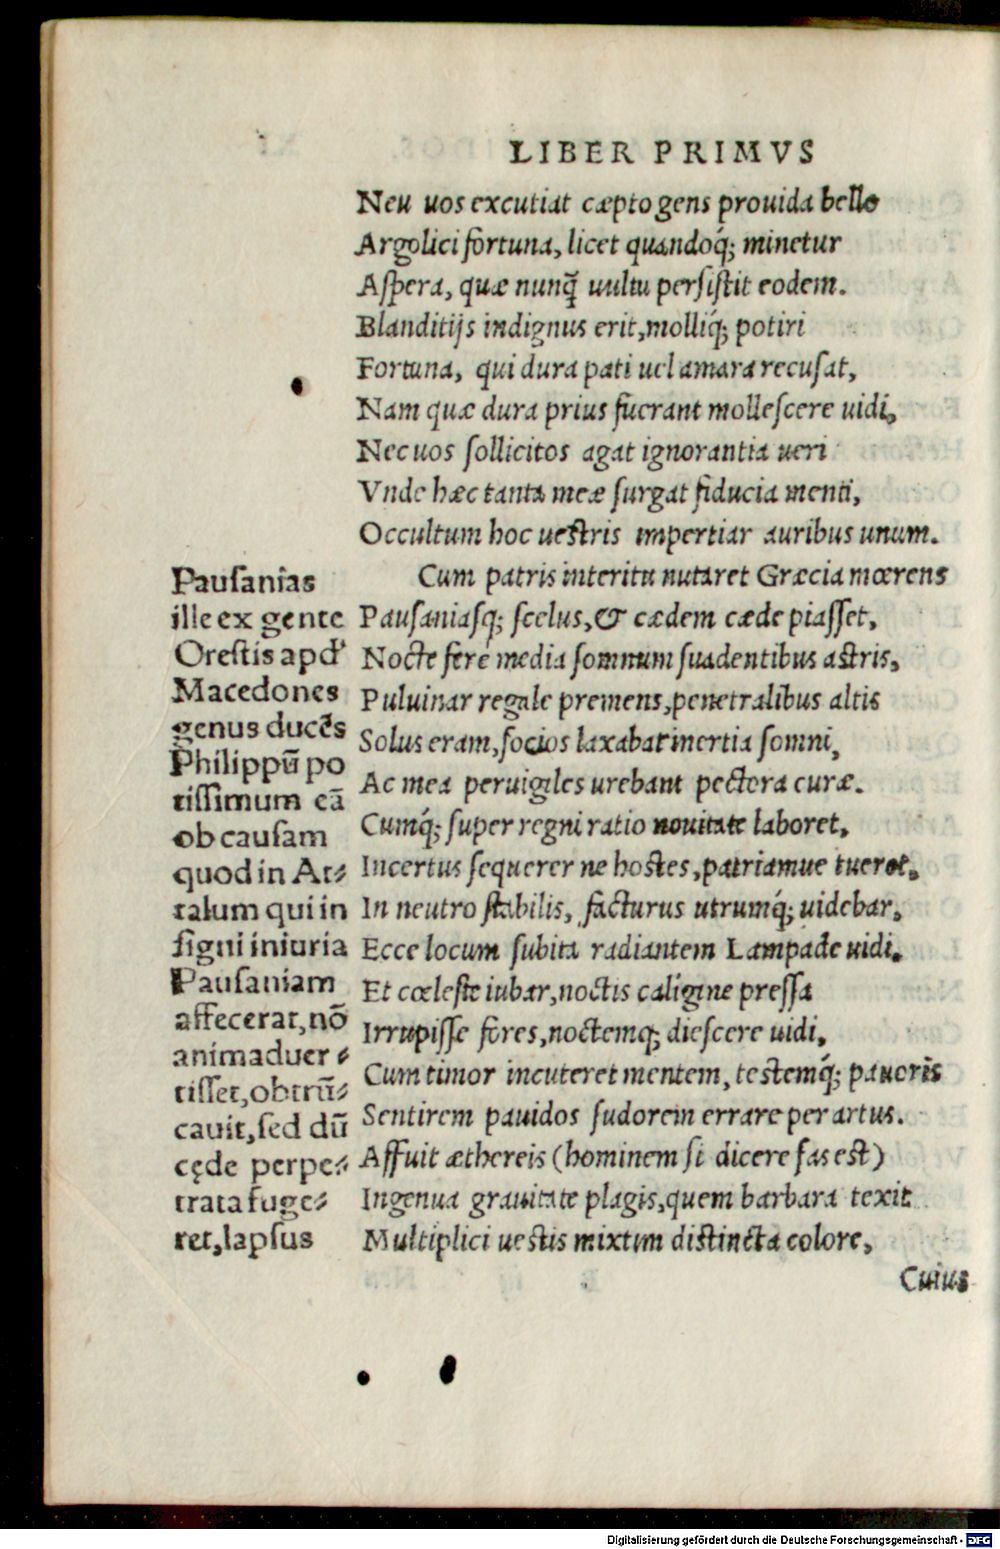 LIBER PRIMVS
Neu uos excutiat cæpto gens prouida bello
Argolici fortuna, licet quandoq́; minetur
Aſpera, quæ nunq̃ uultu perſiſtit eodem.
Blanditijs indignus erit, molliq́; potiri
Fortuna, qui dura pati uel amara recuſat,
Nam quæ dura prius fuerant molleſcere uidi,
Nec uos ſollicitos agat ignorantia ueri
Vnde hæc tanta meæ ſurgat fiducia menti,
Occultum hoc ueſtris impertiar auribus unum.
Cum patris interitu nutaret Græcia mœrens
Pauſaniaſq; ſcelus, & cædem cæde piaſſet,
Nocte fere media ſomnum ſuadentibus aſtris,
Puluinar regale premens, penetralibus altis
Solus eram, ſocios laxabat inertia ſomni,
Ac mea peruigiles urebant pectora curæ.
Cumq́; ſuper regni ratio nouitate laboret,
Incertus ſequerer ne hostes, patriamue tuerer.
In neutro ſtabilis, facturus utrumq́; uidebar,
Ecce locum ſubita radiantem Lampade uidi.
Et cœleſte iubar, noctis caligine preſſa
Irrupiſſe fores, noctemq; dieſcere uidi,
Cum timor incuteret mentem, testemq́; pauoris
Sentirem pauidos ſudorem errare per artus.
Affuit æthereis (hominem ſi dicere fas eſt)
Ingenua grauitate plagis, quem barbara texit
Multiplici ueſtis mixtim diſtincta colore,
Cuius
Pauſanias
ille ex gente
Oreſtis apd'
Macedones
genus ducẽs
Philippũ po
tiſſimum eã
ob cauſam
quod in At⸗
talum qui in
ſigni iniuria
Pauſaniam
affecerat, nõ
animaduer⸗
tiſſet, obtrũ⸗
cauit, ſed dũ
cęde perpe⸗
trata fuge⸗
ret, lapſus
Digitalisierung gefördert durch die Deutsche Forschungsgemeinschaft - DFG